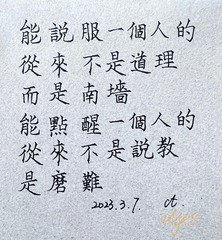 能說服一個人的
從來不是道理
而是南墻
能點醒一個人的
從來不是説教
是磨難
2023.3.7. ct.